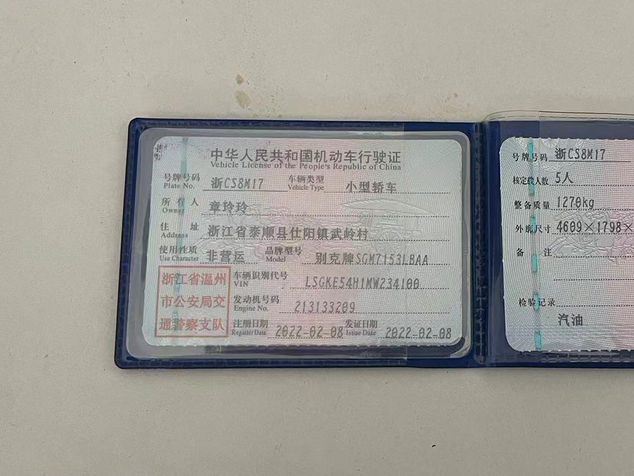 中华人民共和国机动车行驶证
Vehicle License of the People's Republic of China
号牌号码 浙CS8M17 车辆类型 小型轿车
Plate No. Vehicle Type
所有人 章玲玲
Owner
住址 浙江省泰顺县仕阳镇武岭村
Address
使用性质 非营运 品牌型号 别克牌SGM7153LBAA
Use Character Model
浙江省温州
市公安局交
通警察支队
车辆识别代号 LSGKE54H1MW234100
VIN
发动机号码 213133209
Engine No.
注册日期 2022-02-08 发证日期 2022-02-08
Register Date Issue Date
号牌号码 浙CS8M17
核定载人数 5人
整备质量 1270kg
外廓尺寸 4609×1798×
备注
检验记录
汽油